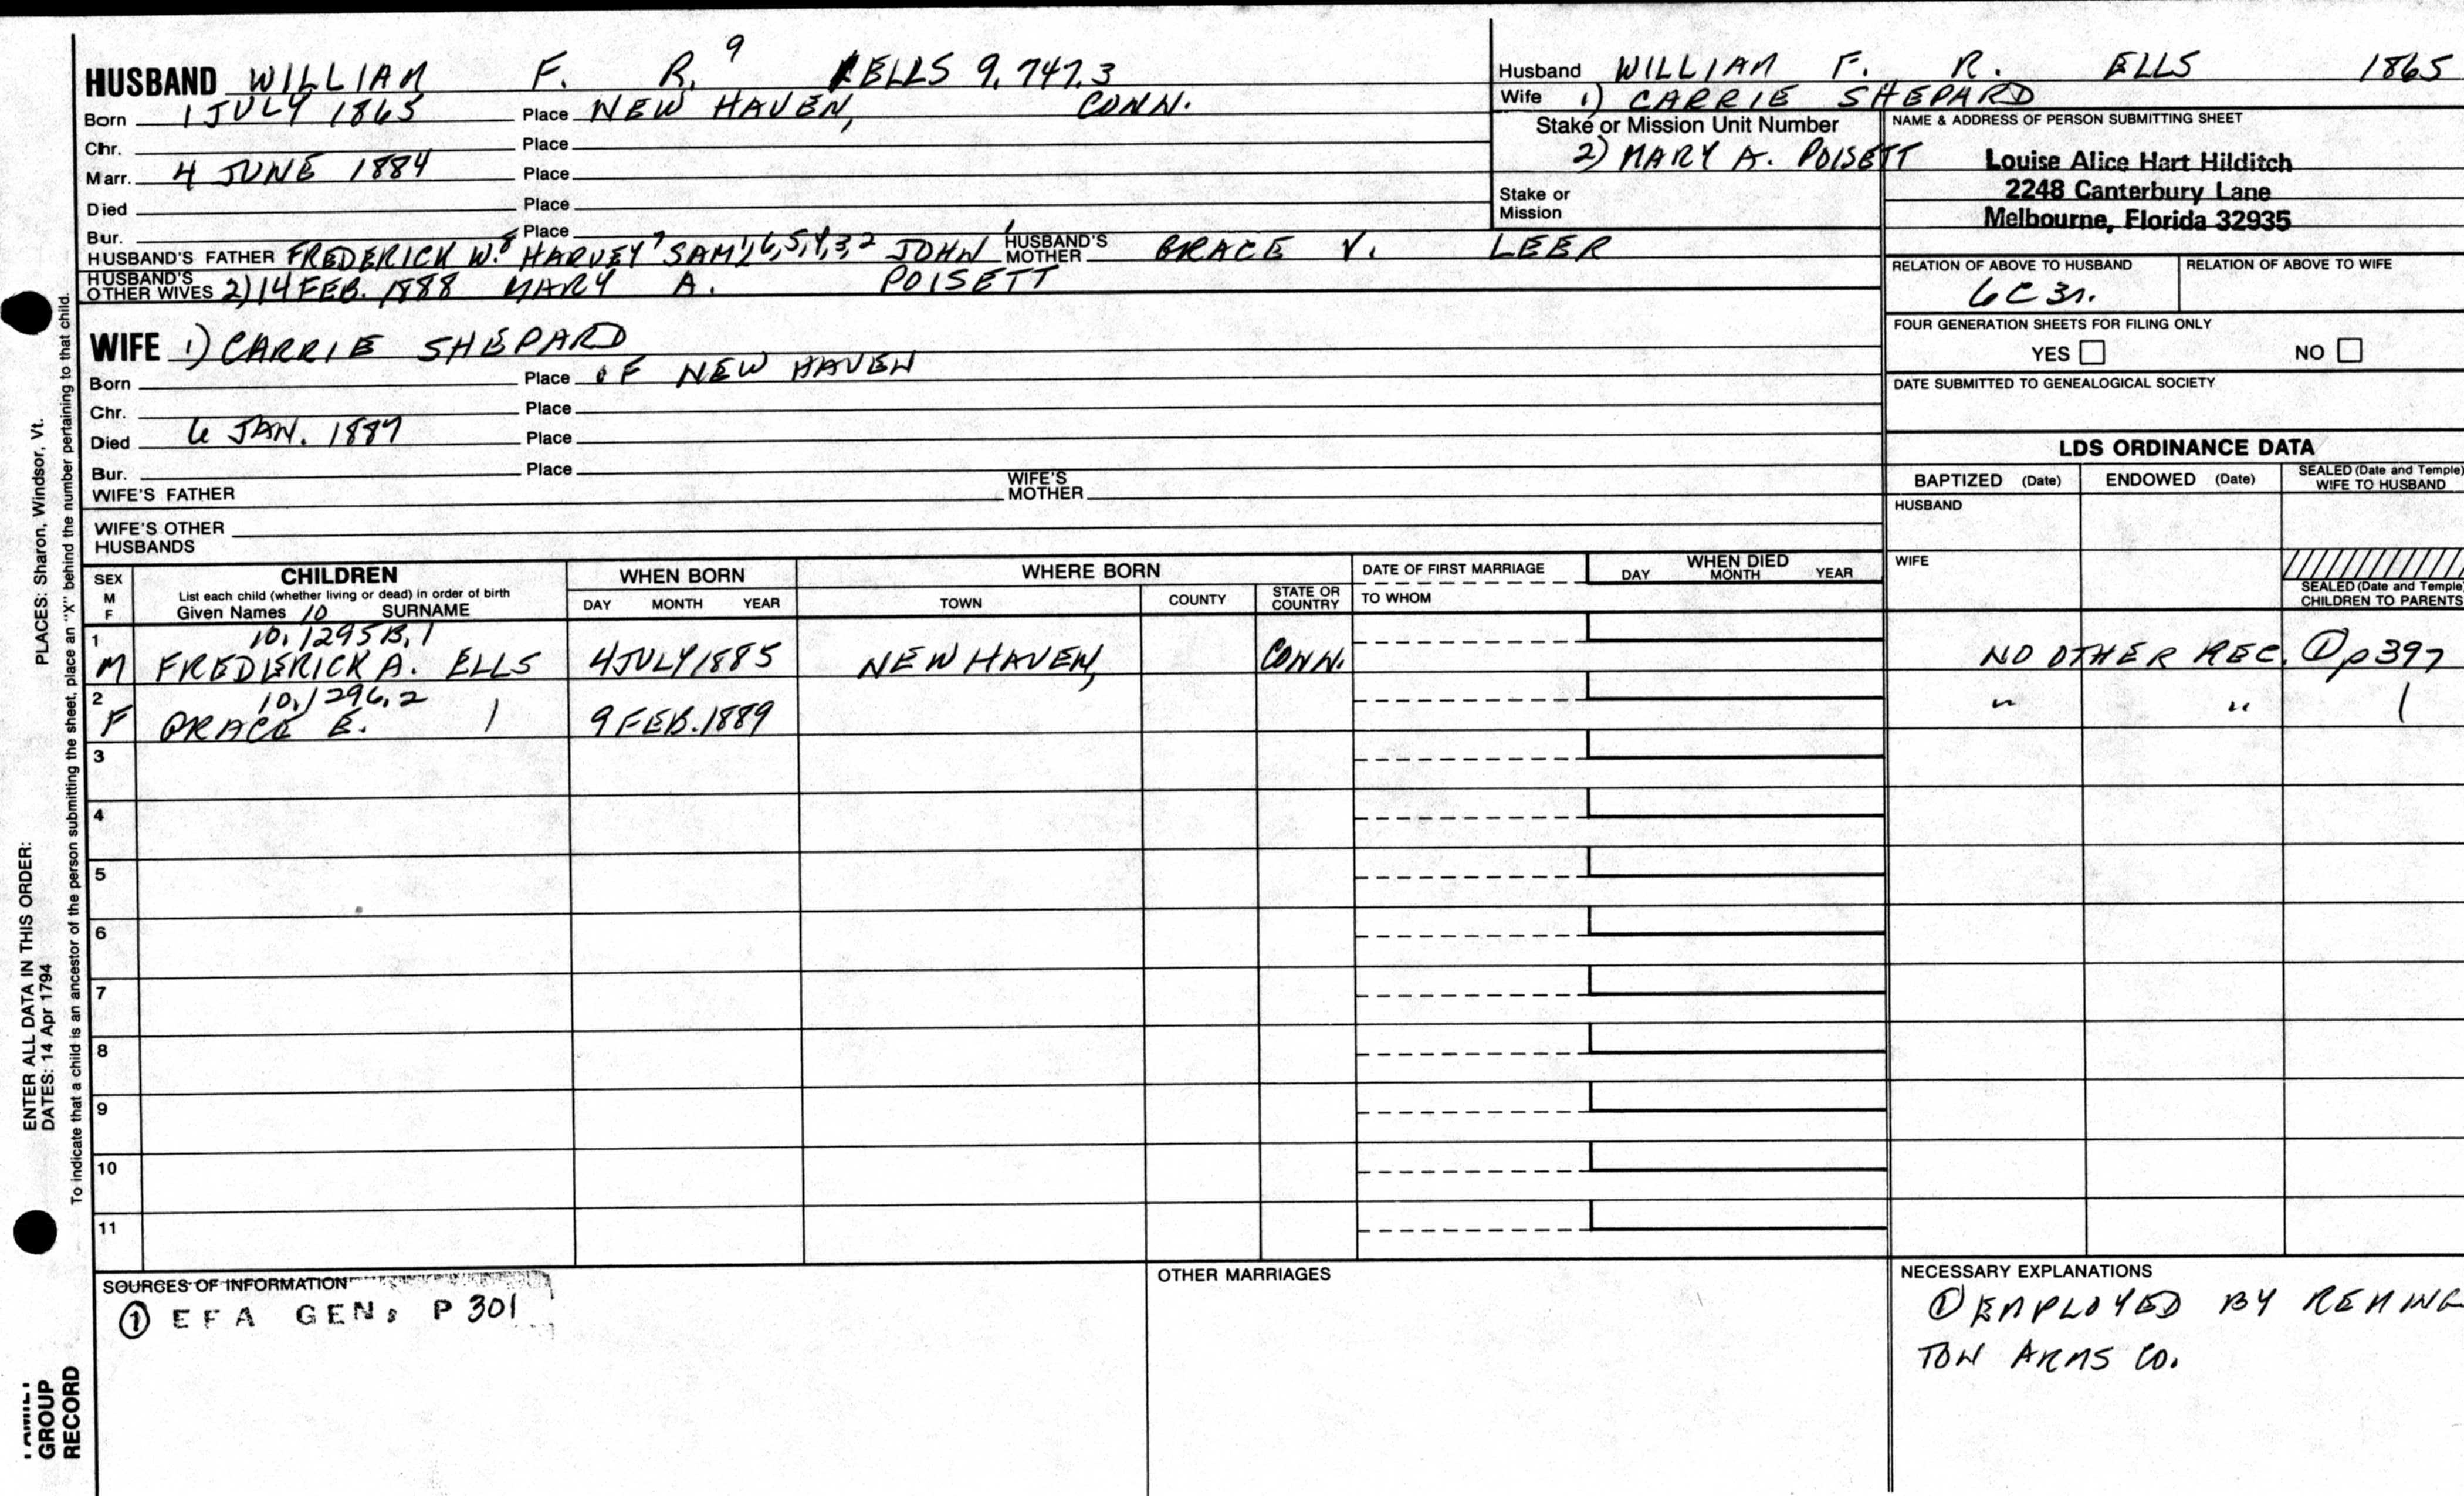 HUSBAND WILLIAM F. R.⁹ ELLS 9.747.3
Born 1 JULY 1865 Place NEW HAVEN, CONN.
Chr. Place
Marr. 4 JUNE 1884 Place
Died Place
Bur. Place
HUSBAND'S FATHER FREDERICK W.⁸ HARVEY⁷ SAM'L⁶,⁵,⁴,³,² JOHN¹ HUSBAND'S MOTHER GRACE V. LEER
HUSBAND'S OTHER WIVES 2) 14 FEB. 1888 MARY A. POISETT
Husband WILLIAM F. R. ELLS 1865
Wife 1) CARRIE SHEPARD
Stake or Mission Unit Number
2) MARY A. POISETT
Stake or
Mission
NAME & ADDRESS OF PERSON SUBMITTING SHEET
Louise Alice Hart Hilditch
2248 Canterbury Lane
Melbourne, Florida 32935
RELATION OF ABOVE TO HUSBAND RELATION OF ABOVE TO WIFE
6C3r.
FOUR GENERATION SHEETS FOR FILING ONLY
YES NO
DATE SUBMITTED TO GENEALOGICAL SOCIETY
WIFE 1) CARRIE SHEPARD
Born Place OF NEW HAVEN
Chr. Place
Died 6 JAN. 1887 Place
Bur. Place
WIFE'S FATHER WIFE'S MOTHER
WIFE'S OTHER
HUSBANDS
LDS ORDINANCE DATA
BAPTIZED (Date) ENDOWED (Date) SEALED (Date and Temple) WIFE TO HUSBAND
HUSBAND
WIFE
SEALED (Date and Temple) CHILDREN TO PARENTS
SEX M F CHILDREN WHEN BORN WHERE BORN DATE OF FIRST MARRIAGE WHEN DIED
List each child (whether living or dead) in order of birth
Given Names 10 SURNAME DAY MONTH YEAR TOWN COUNTY STATE OR COUNTRY TO WHOM DAY MONTH YEAR
1 10.1295B.1
M FREDERICK A. ELLS 4 JULY 1885 NEW HAVEN, CONN. NO OTHER REC. ① p397
2 10.1296.2
F GRACE E. | 9 FEB. 1889 " " |
3
4
5
6
7
8
9
10
11
SOURCES OF INFORMATION
① EFA GEN; P 301
OTHER MARRIAGES
NECESSARY EXPLANATIONS
① EMPLOYED BY REMING
TON ARMS CO.
PLACES: Sharon, Windsor, Vt.
ENTER ALL DATA IN THIS ORDER:
DATES: 14 Apr 1794
To indicate that a child is an ancestor of the person submitting the sheet, place an "X" behind the number pertaining to that child.
FAMILY
GROUP
RECORD